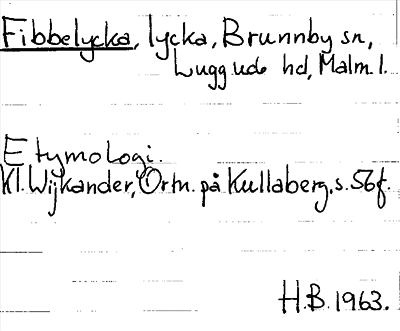 Fibbelycka, lycka, Brunnby sn,
Lugg.ude hd, Malm. l.
Etymologi.
Kl. Wijkander, Ortn. på Kullaberg, s. 56f.
H.B. 1963.